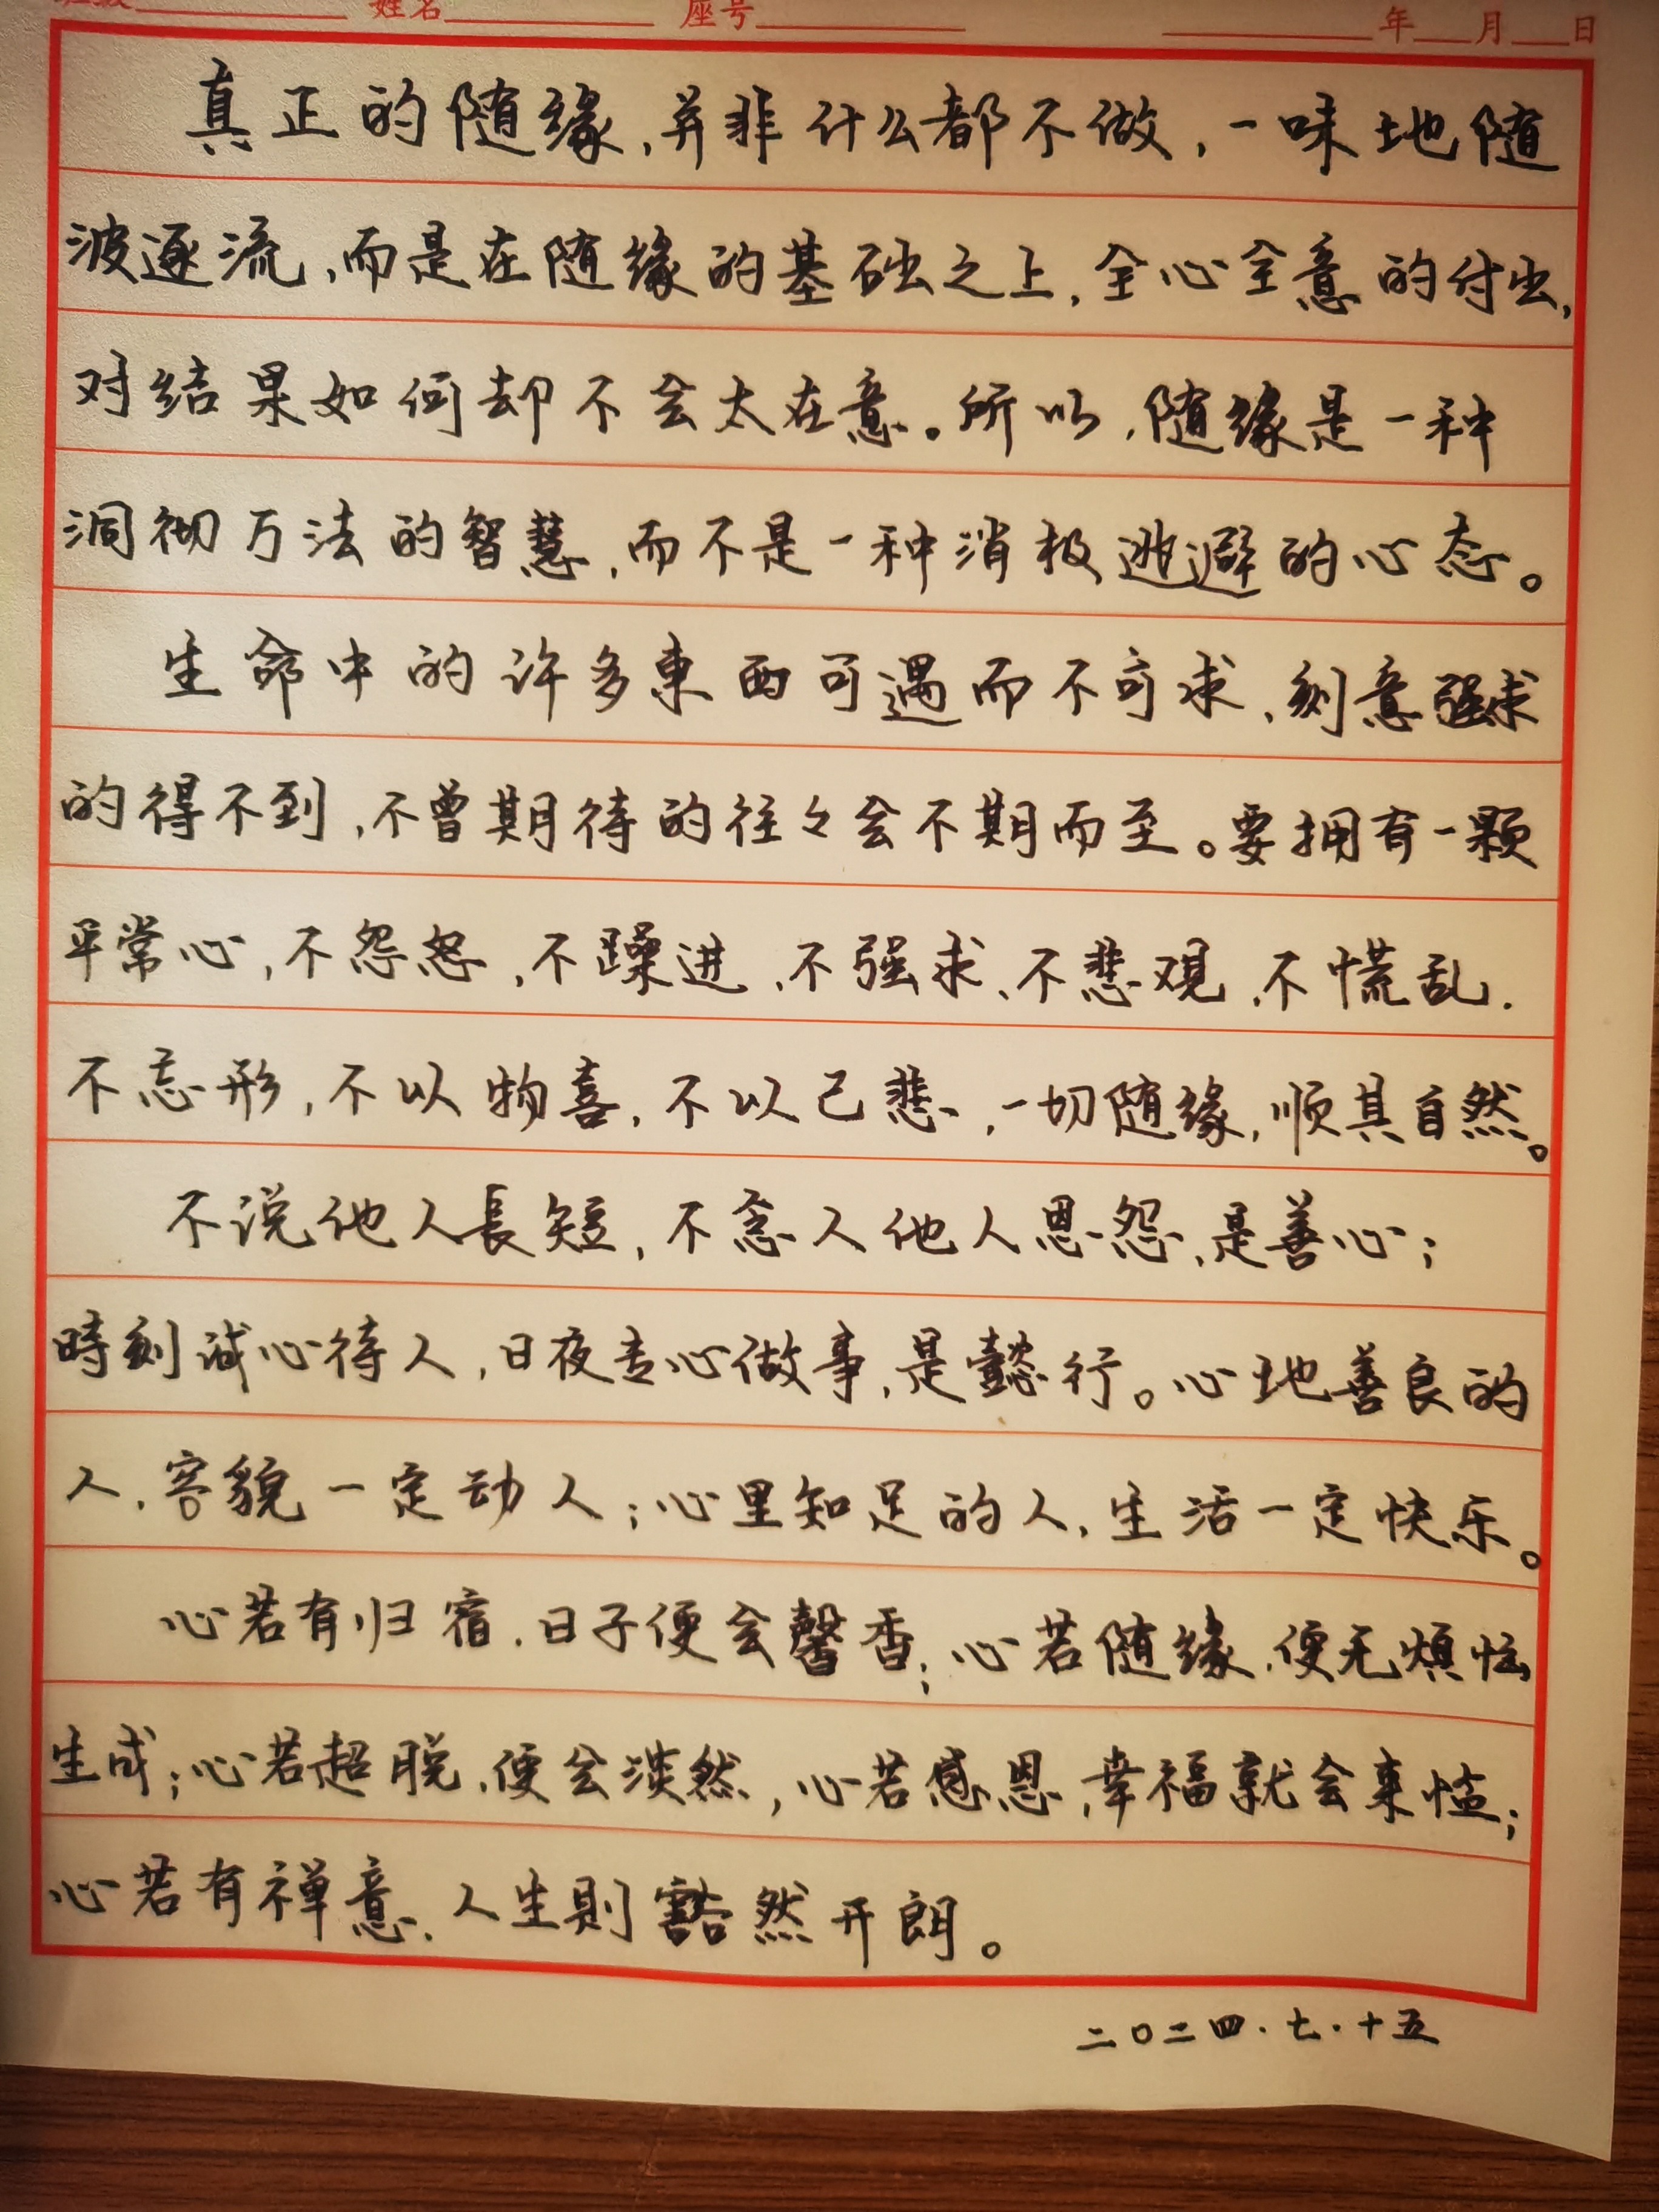 班级 姓名 座号 年 月 日
真正的随缘,并非什么都不做,一味地随
波逐流,而是在随缘的基础之上,全心全意的付出,
对结果如何却不会太在意。所以,随缘是一种
洞彻万法的智慧,而不是一种消极逃避的心态。
生命中的许多東西可遇而不可求,刻意强求
的得不到,不曾期待的往々会不期而至。要拥有一颗
平常心,不怨怒,不躁进,不强求、不悲观,不慌乱.
不忘形,不以物喜,不以己悲,一切随缘,顺其自然。
不说他人長短,不念人他人恩怨,是善心;
時刻诚心待人,日夜专心做事,是懿行。心地善良的
人,容貌一定动人;心里知足的人,生活一定快乐。
心若有归宿,日子便会馨香;心若随缘,便无烦恼
生成;心若超脱,便会淡然,心若感恩,幸福就会来
心若有禅意,人生則豁然开朗。
二〇二四.七.十五